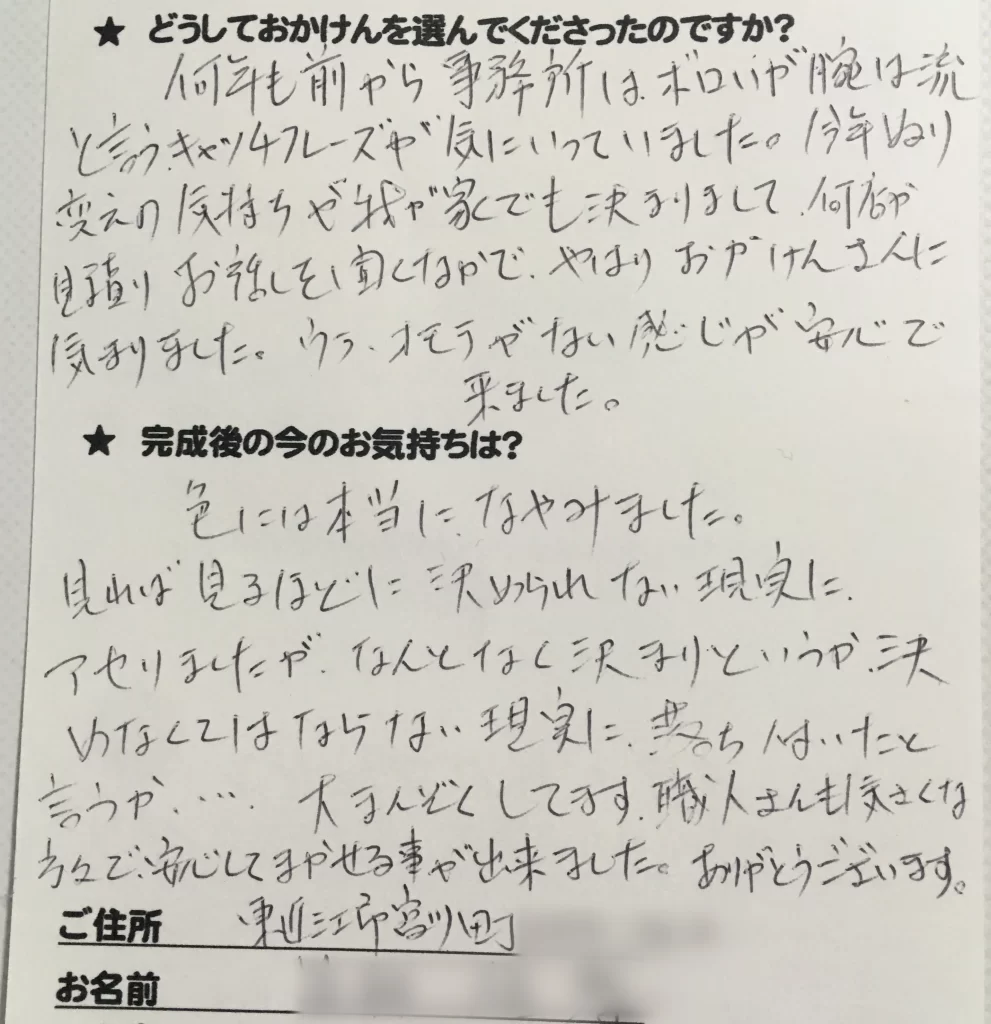 ★ どうしておかけんを選んでくださったのですか?
何年も前から事務所はボロいが腕は流
と言うキャッチフレーズが気にいっていました。今年ぬり
変えの気持ちが我が家でも決まりまして、何店か
見積り お話しを聞くなかで、やはりおかけんさんに
気まりました。ウラ、オモテがない感じが安心で
来ました。
★ 完成後の今のお気持ちは?
色には本当に、なやみました。
見れば見るほどに決められない現実に、
アセりましたが、なんとなく決まりというか、決
めなくてはならない現実に、落ちついたと
言うか、…. 大まんぞくしてます。職人さんも気さくな
方々で、安心してまかせる事が出来ました。ありがとうございます。
ご住所 東近江市宮川町
お名前